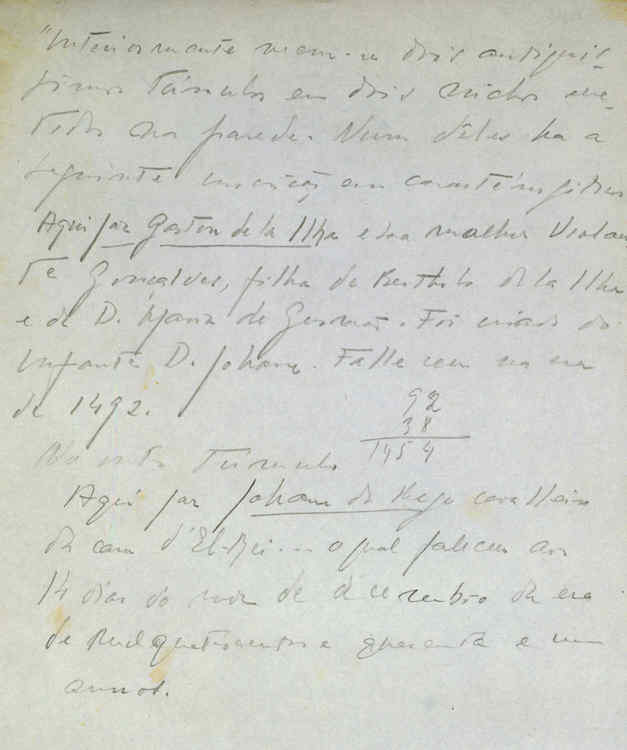 "Interiormente veem-se dois antiquis-
simos tumulos em dois nichos me-
tidos na parede. Num deles ha a
seguinte inscrição em caracteres goticos
Aqui jaz Gaston de la Ilha e sua molher Violan
te Gonçalves, filha de Berthelo de la Ilha
e de D. Maria de . Foi criado do
Infante D. Johane. Falleceu na era
de 1492.
92
38
1454
No outro Tumulo
Aqui jaz Johane do Rego cavalleiro
da casa d'El-Rei ... o qual faleceu aos
14 dias do mez de dezembro da era
de mil quatrocentos e quarenta e um
annos.